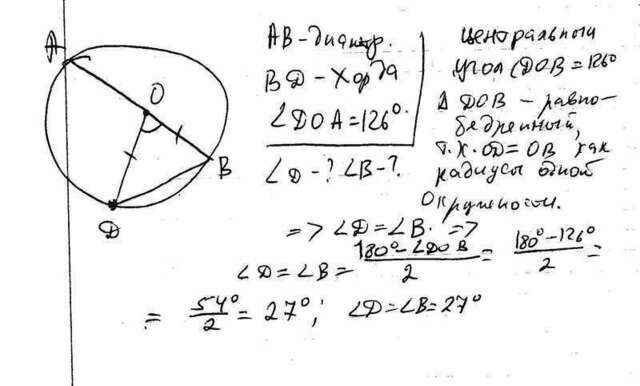 A
O
B
D
АВ-диаметр.
ВD - Хорда
∠DOA = 126°.
∠D-? ∠B-?
центральный
угол ∠DOB = 126°
Δ DOB - равно-
бедренный,
т.к. OD = OB как
радиусы одной
окружности.
=> ∠D = ∠B. =>
∠D = ∠B = (180° - ∠DOB)/2 = (180° - 126°)/2 =
= 54°/2 = 27°; ∠D = ∠B = 27°